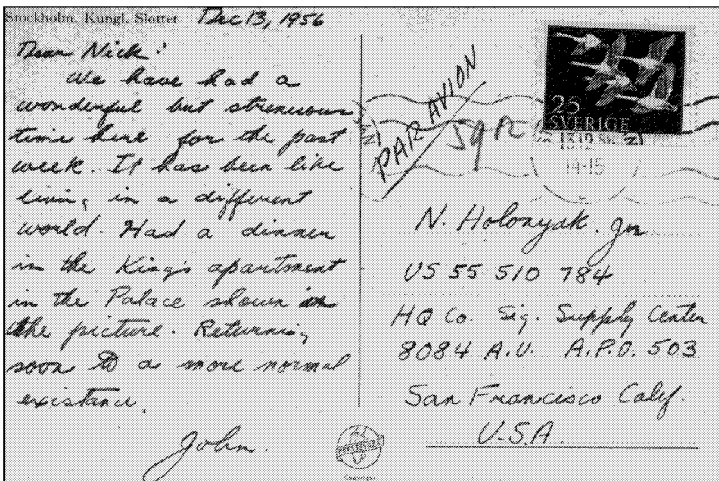 Stockholm, Kungl. Slottet
Dec 13, 1956
Dear Nick:
We have had a
wonderful but strenuous
time here for the past
week. It has been like
living in a different
world. Had a dinner
in the King's apartment
in the Palace shown in
the picture. Returning
soon to a more normal
existance.
John.
PAR AVION
25
SVERIGE
13 12 56
14-15
N. Holonyak, Jr
US 55 510 784
HQ Co. Sig. Supply Center
8084 A.U. A.P.O. 503
San Francisco Calif.
U.S.A.